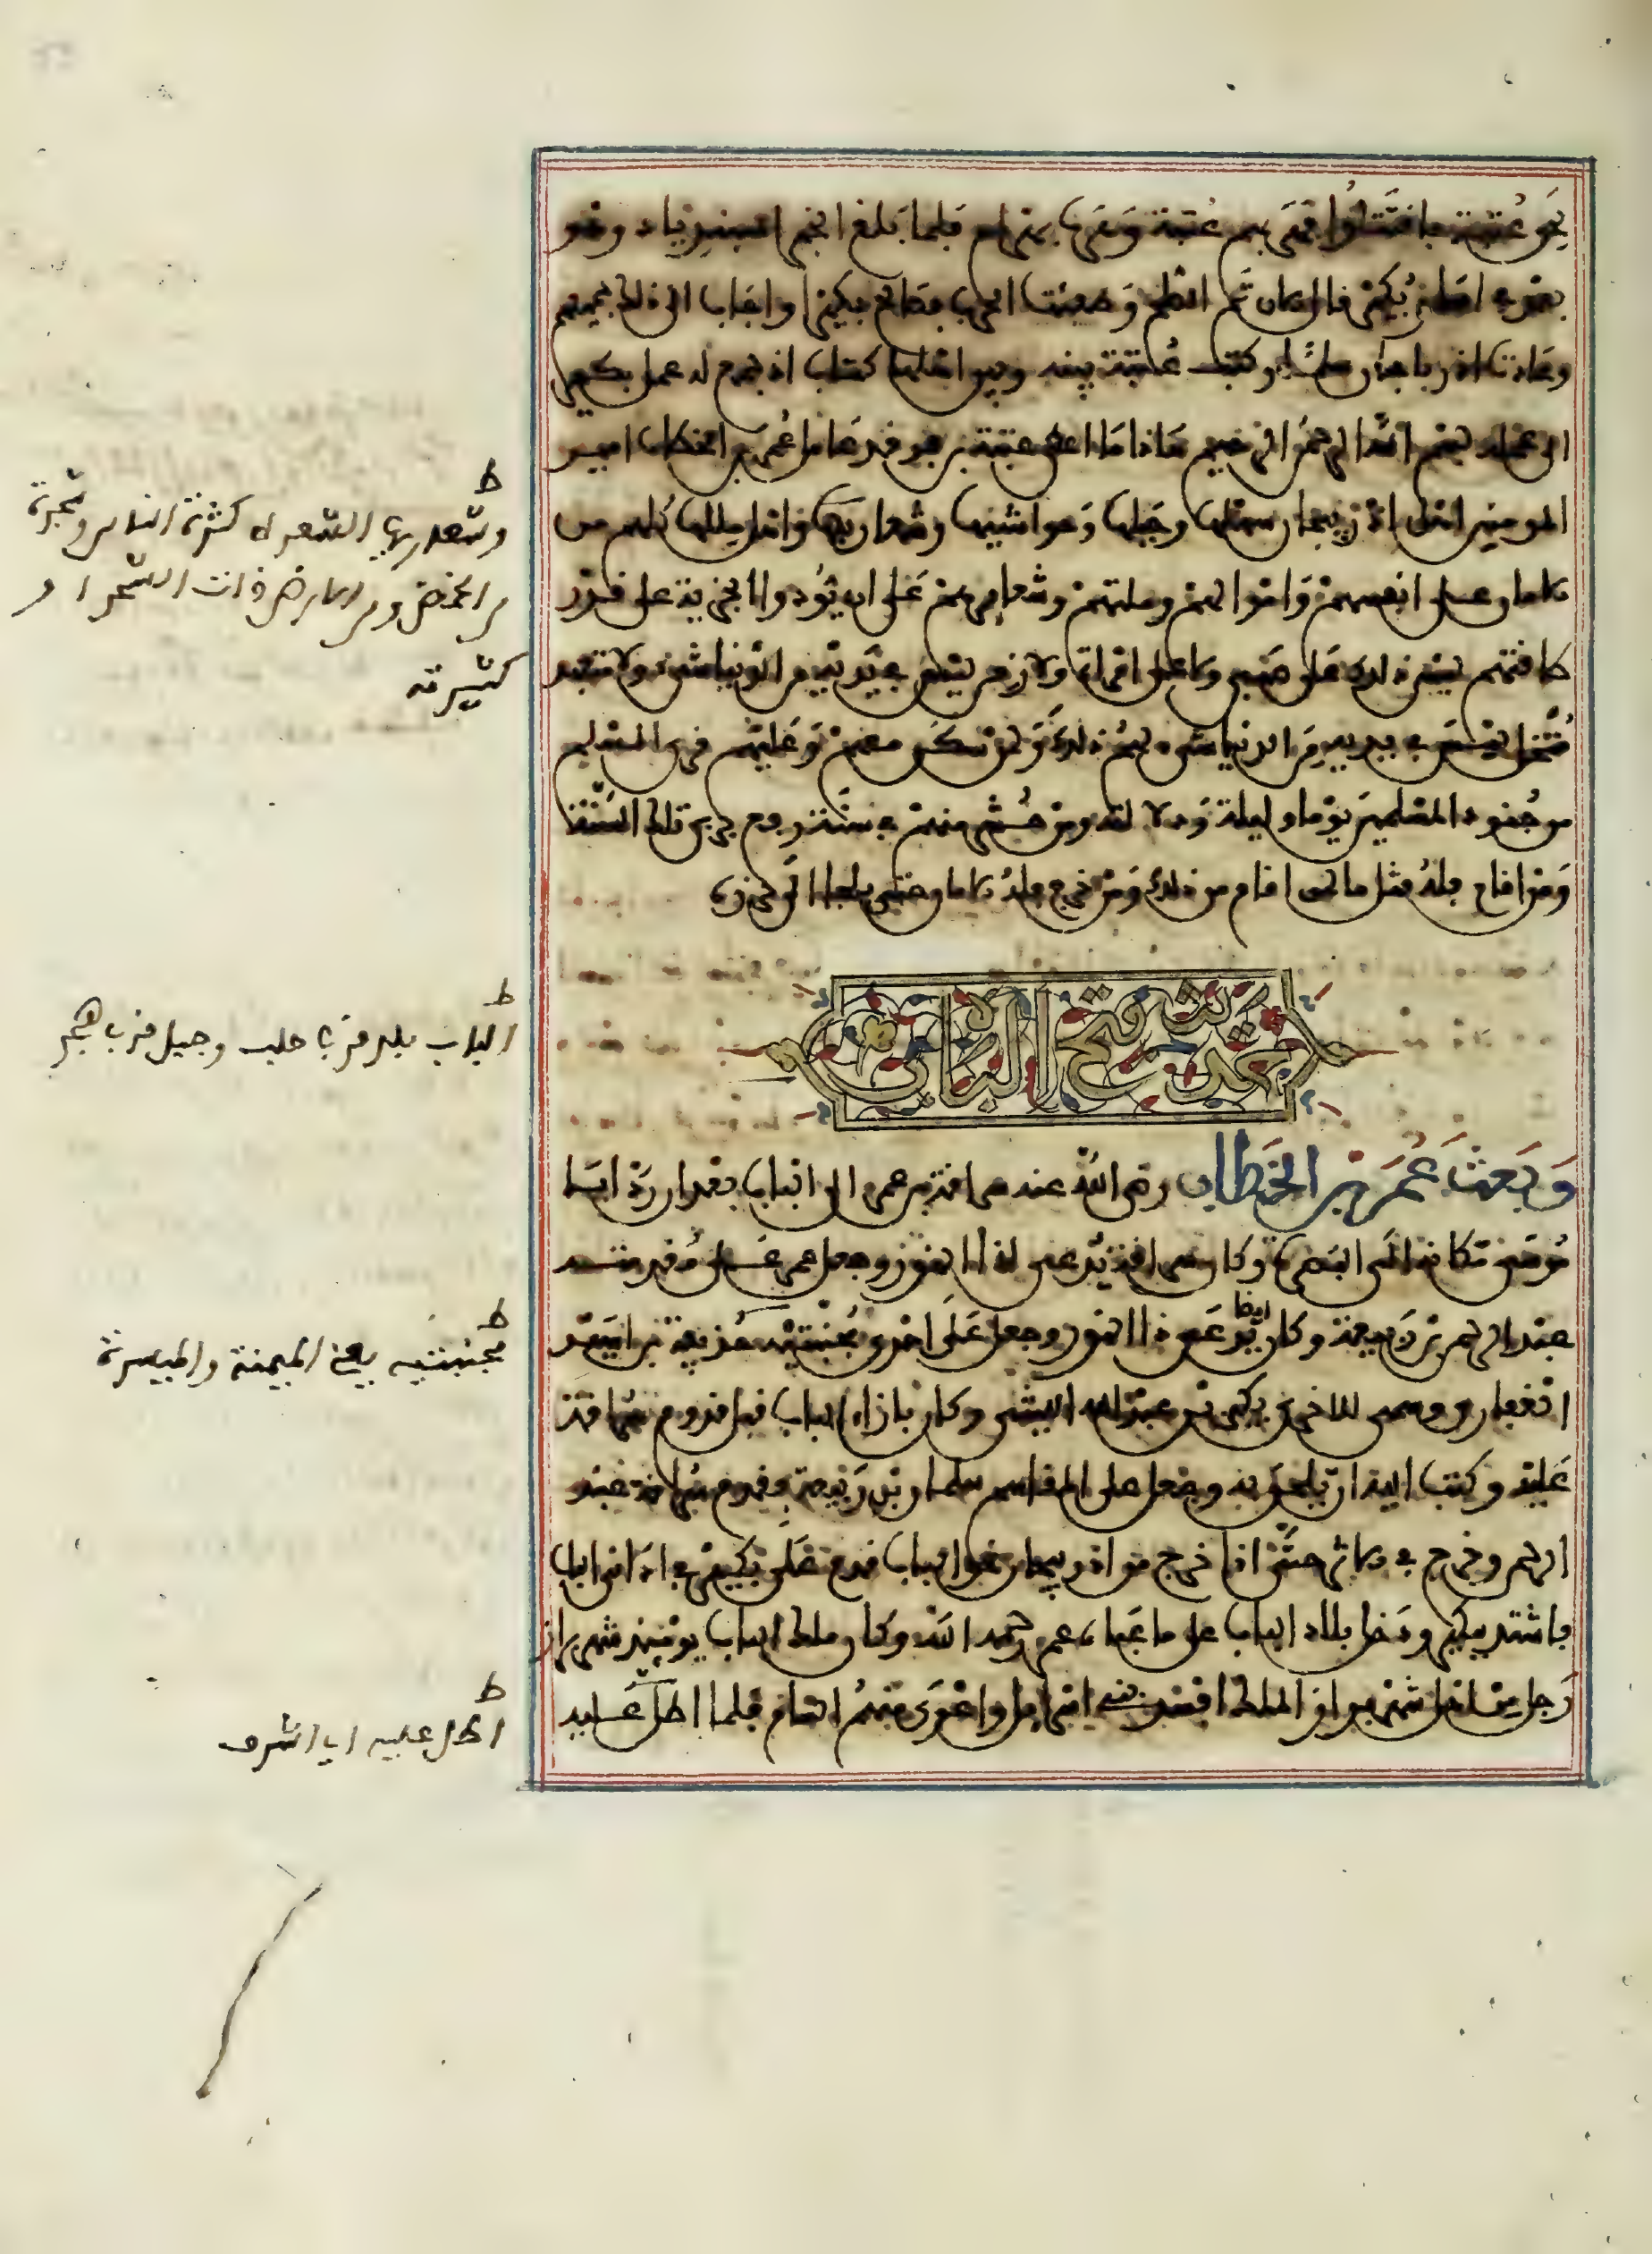 نحو عتبة فاقتتلوا فهزمهم عتبة وهرب بهرام فلما بلغ الخبر اسفنديار وهو
بعنوة اسار بكير قال الان تم الصلح وطفئت الحرب فصالح بكيرا واجاب الى ذلك جميعهم
وعادت اذربيجان سلما وكتب عتبة بينه وبين اهلها كتابا اذ جمع له عمل بكير
الى عمله بسم الله الرحمن الرحيم هاذا ما اعطى عتبة بن فرقد عامل عمر بن الخطاب امير
المومنين اهل اذربيجان سهلها وجبلها وحواشيها وشعارها واهل مللها كلهم من
الامان على انفسهم واموالهم وملتهم وشرايعهم على ان يودوا الجزية على قدر
طاقتهم ليس ذلك على صبي ولا على امراة ولا زمن ليس في يديه من الدنيا شيء ولا متعبد
متخل ليس في يديه من الدنيا شيء لهم ذلك ولمن سكن معهم وعليهم قرى المسلم
من جنود المسلمين يوما وليلة ودلالته ومن حشر منهم في سنة رفع جزي تلك السنة
ومن اقام فله مثل ما لمن اقام من ذلك ومن خرج فله الامان حتى يلجا الى حرزه
حديث فتح الباب
وبعث عمر بن الخطاب رضي الله عنه سراقة بن عمرو الى الباب بعد ان رد ابا
موسى مكانه الى البصرة وكان سراقة يدعى ذا النور وجعل عمر على مقدمته
عبد الرحمن بن ربيعة وكان يدعى ايضا ذا النور وجعل على احدى مجنبتيه حذيفة بن اسيد
الغفاري وسمى للاخرى بكير بن عبد الله الليثي وكان بازاء الباب قبل قدوم سراقة
عليه وكتب اليه ان يلحق به وجعل على المقاسم سلمان بن ربيعة وقدم سراقة عبد
الرحمن وخرج في الاثر حتى اذا خرج من اذربيجان نحو الباب قدم على بكير في ادانى الباب
فاستدف ببكير ودخل بلاد الباب على ما عباه عمر رحمه الله وكان ملك الباب يومئذ شهربراز
رجل من اهل شهربراز الملك افسد بني اسرائيل واعرى منهم الشام فلما اطل عليه
ط
وشعاريها الشعراء كثرة الناس وشجرة
من الحمض ومن الارض ذات الشجر او
كثيرته
ط
الباب بلد قرب حلب وجبل قرب هجر
ط
مجنبتيه يعني الميمنة والميسرة
ط
اطل عليه اي اشرف